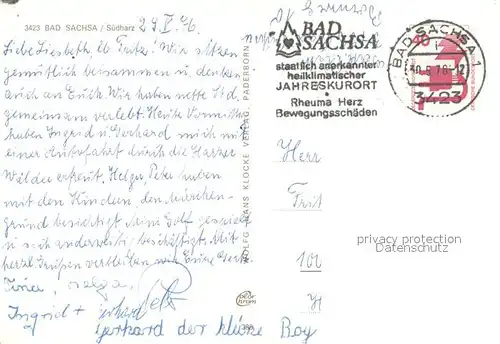 3423 BAD SACHSA / Südharz
Liebe Liesbeth u. Fritz! Wir sitzen
gemütlich beisammen u. denken
auch an Euch. Wir haben nette Std.
gemeinsam verlebt. Heute Vormitt.
haben Ingrid u. Gerhard mich mit
einer Autofahrt durch die Harzer
Wälder erfreut. Helga, Peter haben
mit den Kindern den Märchen-
grund besichtigt, Golf gespielt
u. sich anderweitig beschäftigt. Mit
herzl. Grüßen verbleiben wir Eure
Helga
Ingrid + Gerhard Peter
Gerhard der kleine Boy
WOLFG. HANS KLOCKE VERLAG, PADERBORN
BAD
SACHSA
staatlich anerkannter
heilklimatischer
JAHRESKURORT
Rheuma Herz
Bewegungsschäden
BAD SACHSA 1
3423
40
Herrn
Frit
102
privacy protection
Datenschutz